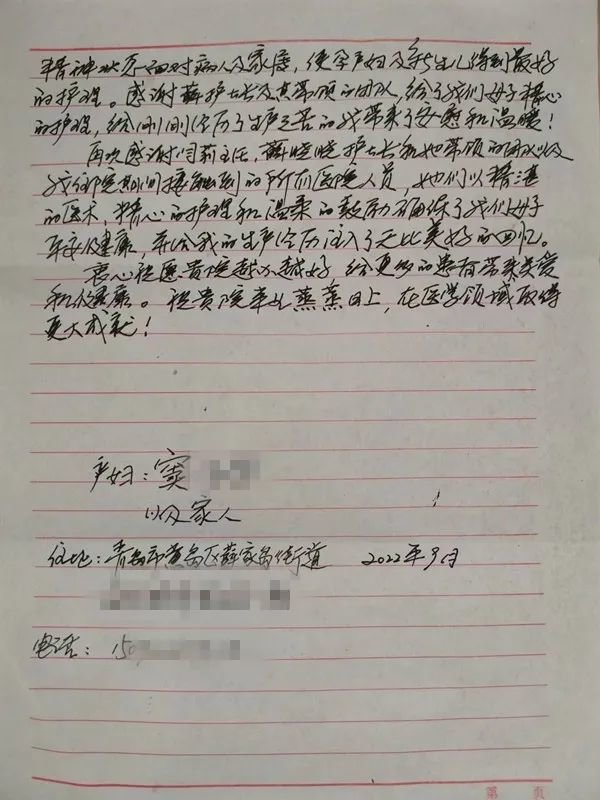 精神状态面对病人及家属，使孕产妇及新生儿得到最好
的护理。感谢薛护士长及其带领的团队，给了我们母子精心
的护理，给刚刚经历了生产之苦的我带来了安慰和温暖！
再次感谢闫莉主任，薛晓晓护士长和她带领的团队以及
我们住院期间接触到的所有医院人员，她们以精湛
的医术，精心的护理和温柔的鼓励确保了我们母子
平安健康，并给我的生产经历注入了无比美好的回忆。
衷心祝愿贵院越办越好，给更多的患者带来关爱
和健康。祝贵院事业蒸蒸日上，在医学领域取得
更大成就！
产妇：窦
以及家人
住址：青岛市黄岛区薛家岛街道 2022年9月
电话：150
第 页